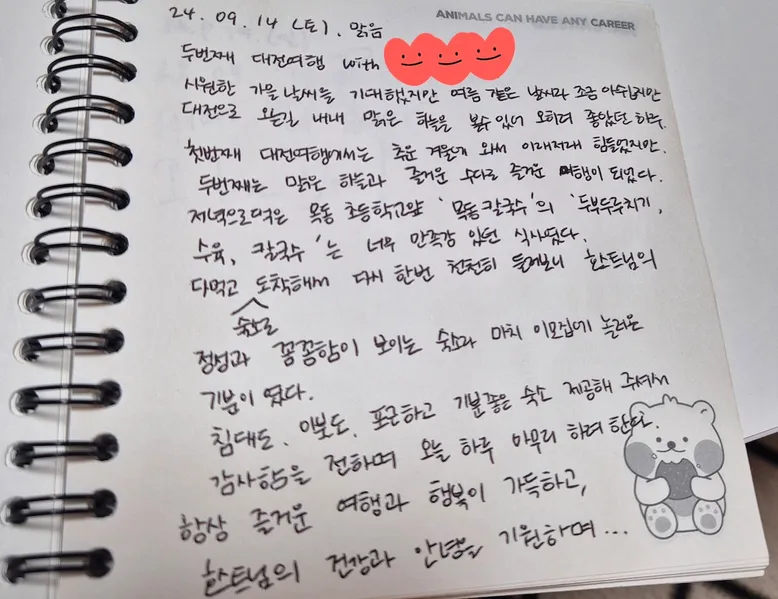 ANIMALS CAN HAVE ANY CAREER
24. 09. 14 (토). 맑음
두번째 대전여행 with
시원한 가을날씨를 기대했지만 여름 같은 날씨라 조금 아쉽지만
대전으로 오는길 내내 맑은 하늘을 볼수 있어 오히려 좋았던 하루.
첫번째 대전여행에서는 추운 겨울에 와서 이래저래 힘들었지만.
두번째는 맑은 하늘과 즐거운 수다로 즐거운 여행이 되었다.
저녁으로먹은 목동 초등학교앞 '목동칼국수'의 '두부두루치기,
수육, 칼국수'는 너무 만족감 있던 식사였다.
다먹고 숙소로 도착해서 다시 한번 천천히 둘러보니 호스트님의
정성과 꼼꼼함이 보이는 숙소라 마치 이모집에 놀러온
기분이 였다.
침대도, 이불도, 포근하고 기분좋은 숙소 제공해 주셔서
감사함을 전하며 오늘 하루 마무리 하려 한다.
항상 즐거운 여행과 행복이 가득하고,
호스트님의 건강과 안녕을 기원하며...